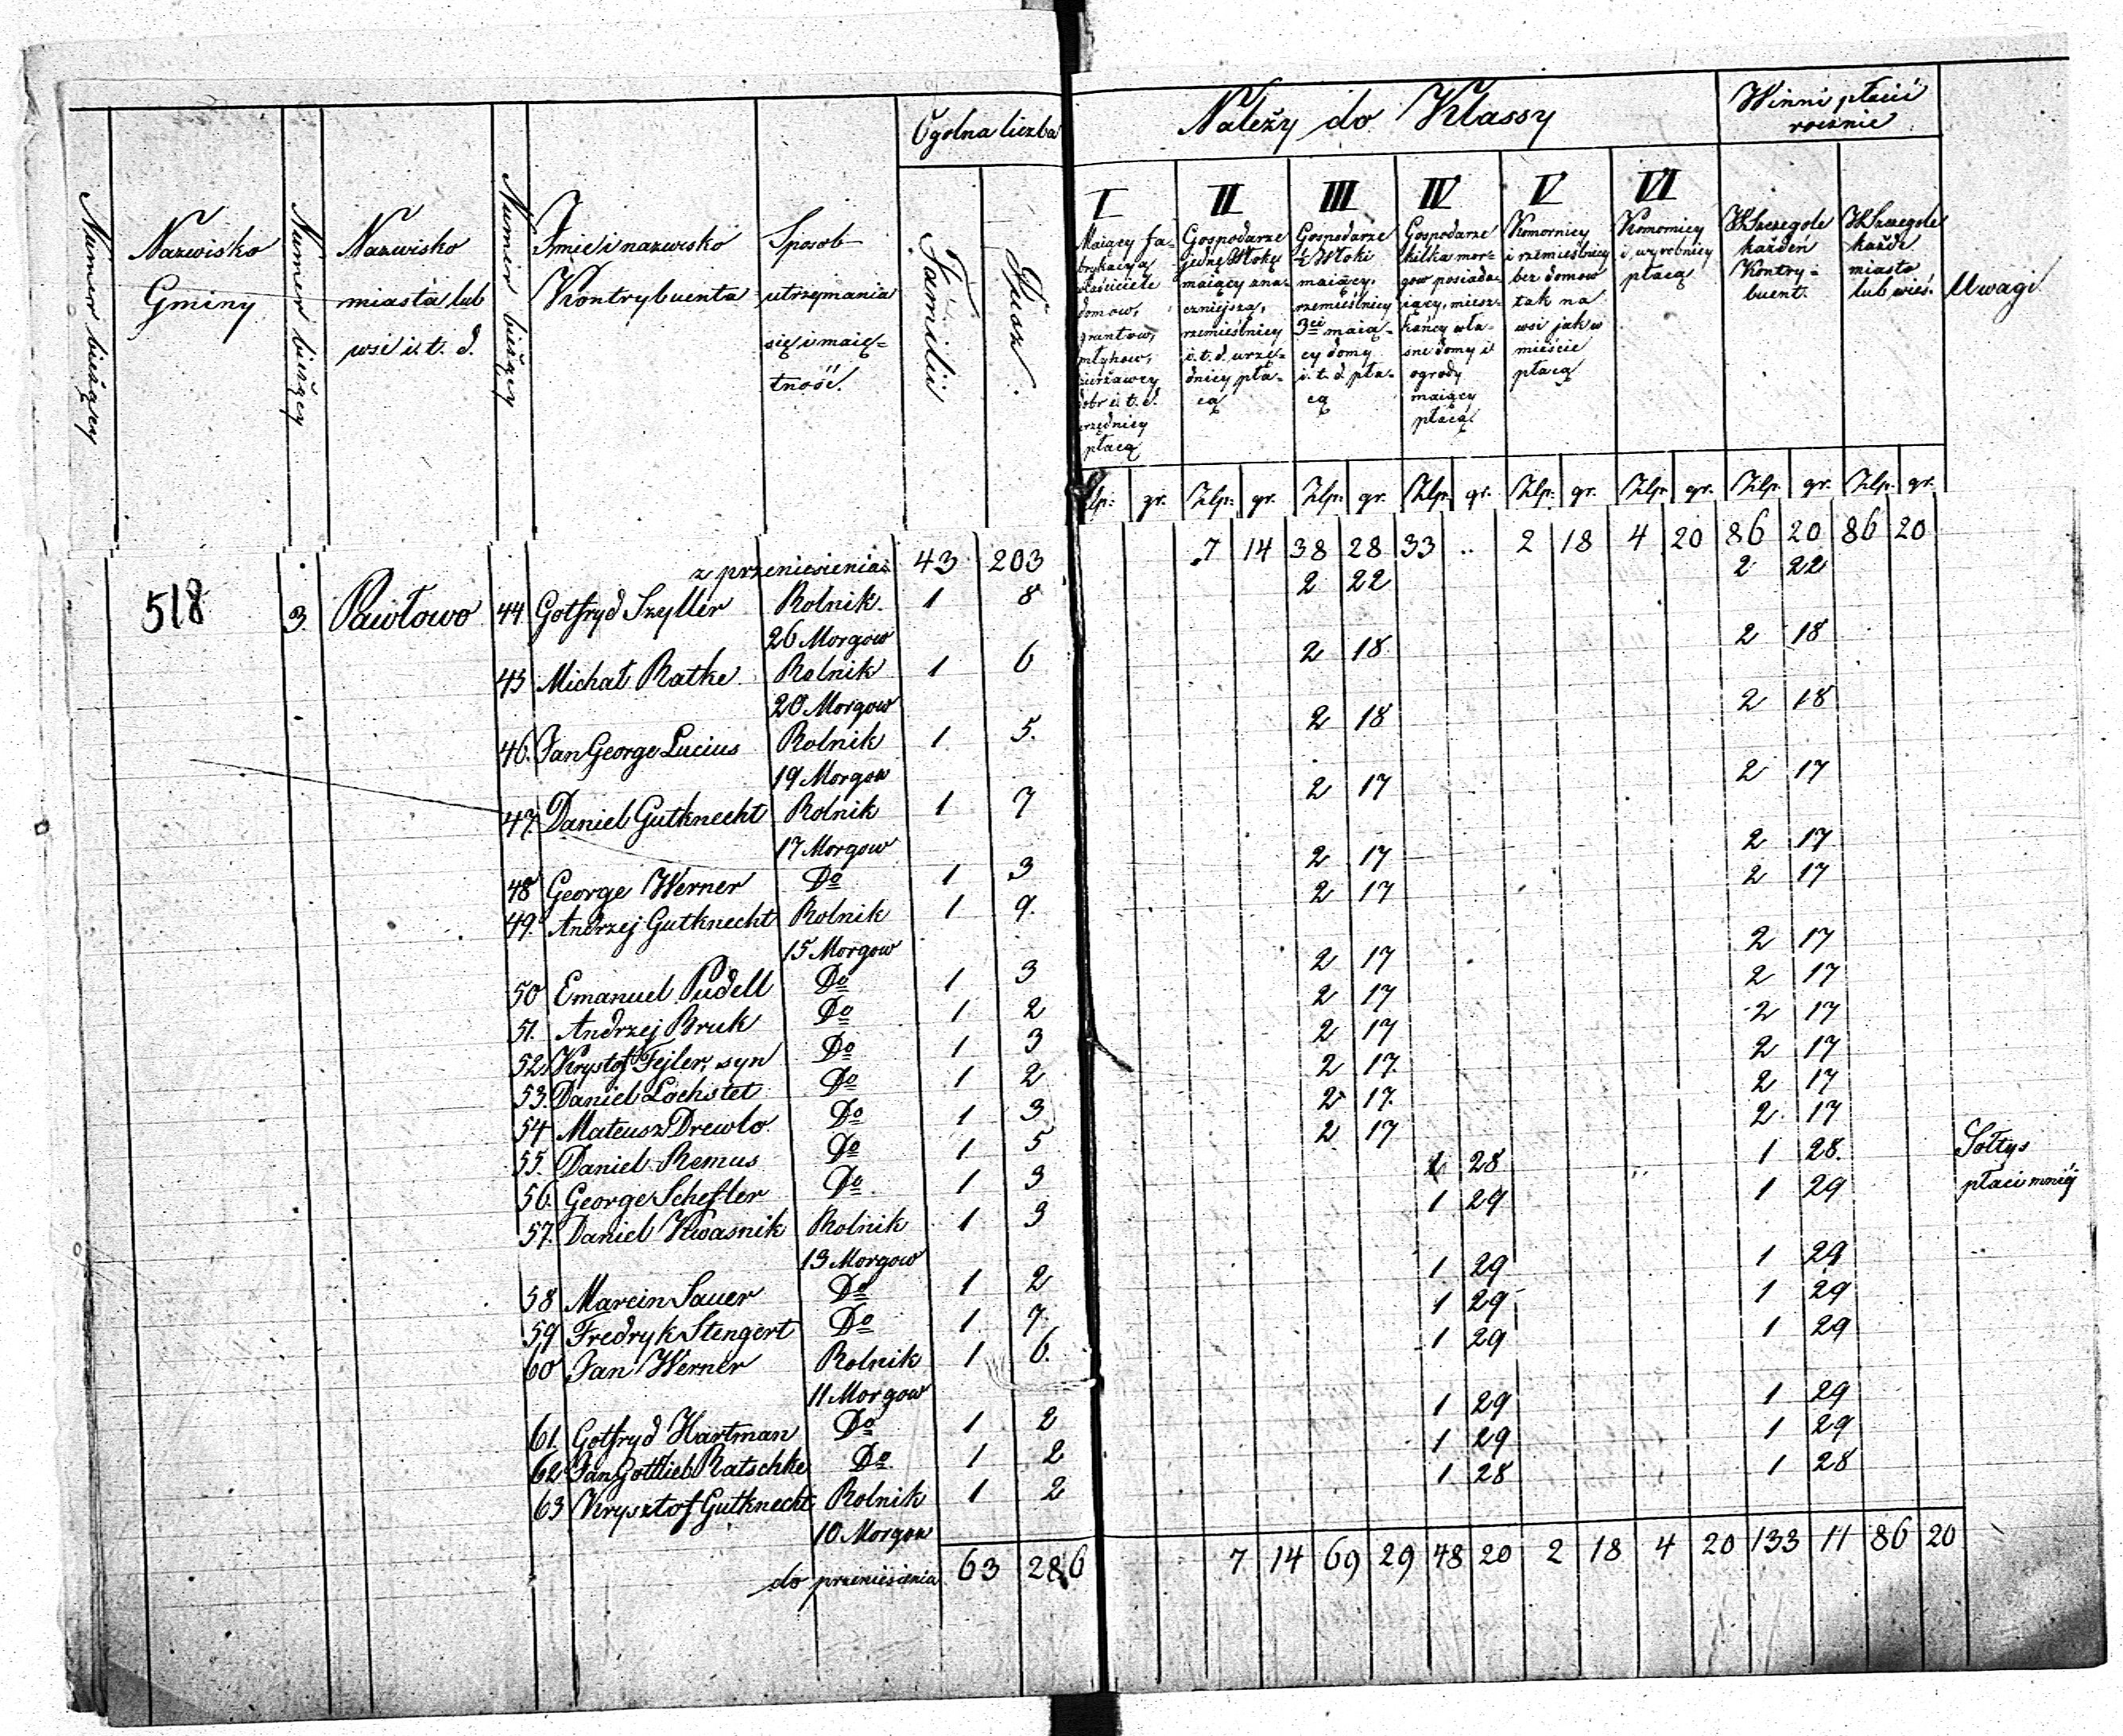 Numer bieżący
Nazwisko
Gminy
Numer bieżący
Nazwisko
miasta lub
wsi i. t. d.
Numer bieżący
Imie i nazwisko
Kontrybuenta
Sposob
utrzymania
się i maię=
tność.
Ogolna liczba
Familii
Dusz
Należy do Klassy
I
Maiący fa=
brykacye
właściciele
domow,
gruntow,
młynow,
dzierżawcy
dobr i. t. d.
urzędnicy
płacą
II
Gospodarze
jedne Włokę
maiący zna=
cznieysza,
rzemieślnicy
i. t. d. urzę=
dnicy pła=
cą
III
Gospodarze
½ Włoki
maiący,
rzemieślnicy
3ci maią=
cy domy
i. t. d. pła=
cą
IV
Gospodarze
kilka mor=
gow posiada=
iący, miesz=
kańcy wła=
sne domy i
ogrody
maiący
płacą
V
Komornicy
i rzemieślnicy
bez domow
tak na
wsi jak w
mieście
płacą
VI
Komornicy
i wyrobnicy
płacą
Winni płacić
rocznie
W Szczegole
każden
Kontry=
buent.
W Szczegole
każde
miasto
lub wieś.
Uwagi
Złp: gr. Złp: gr. Złp: gr. Złp. gr. Złp: gr. Złp gr. Złp. gr. Złp. gr.
z przeniesienia 43 203 7 14 38 28 33 .. 2 18 4 20 86 20 86 20
518 3. Pawłowo 44 Gotfryd Szyller Rolnik 1 8 2 22 2 22
26 Morgow
45 Michał Ratke Rolnik 1 6 2 18 2 18
20 Morgow
46. Jan George Lucius Rolnik 1 5. 2 18 2 18
19 Morgow
47 Daniel Gutknecht Rolnik 1 7 2 17 2 17
17 Morgow
48 George Werner Do 1 3 2 17 2 17
49. Andrzej Gutknecht Rolnik 1 9. 2 17 2 17
15 Morgow
50 Emanuel Pudell Do 1 3 2 17 2 17
51. Andrzej Bruk Do 1 2 2 17 2 17
52 Krystof Fejler, syn Do 1 3 2 17 2 17
53. Daniel Lochstet Do 1 2 2 17. 2 17
54 Mateusz Drewlo Do 1 3 2 17. 2 17
55. Daniel Remus Do 1 5 2 17 2 17
56. George Schefler Do 1 3 1 28 1 28. Sołtys
57. Daniel Kwasnik Rolnik 1 3 1 29 1 29 płaci mniéj
13 Morgow
58 Marcin Sauer Do 1 2 1 29 1 29
59 Fredryk Stengert Do 1 7. 1 29 1 29
60 Jan Werner Rolnik 1 6. 1 29 1 29
11 Morgow
61. Gotfryd Hartman Do 1 2 1 29 1 29
62 Jan Gottlieb Ratschke Do 1 2 1 29 1 29
63 Krysztof Gutknecht Rolnik 1 2 1 28 1 28
10 Morgow
do przeniesienia 63 286 7 14 69 29 48 20 2 18 4 20 133 11 86 20